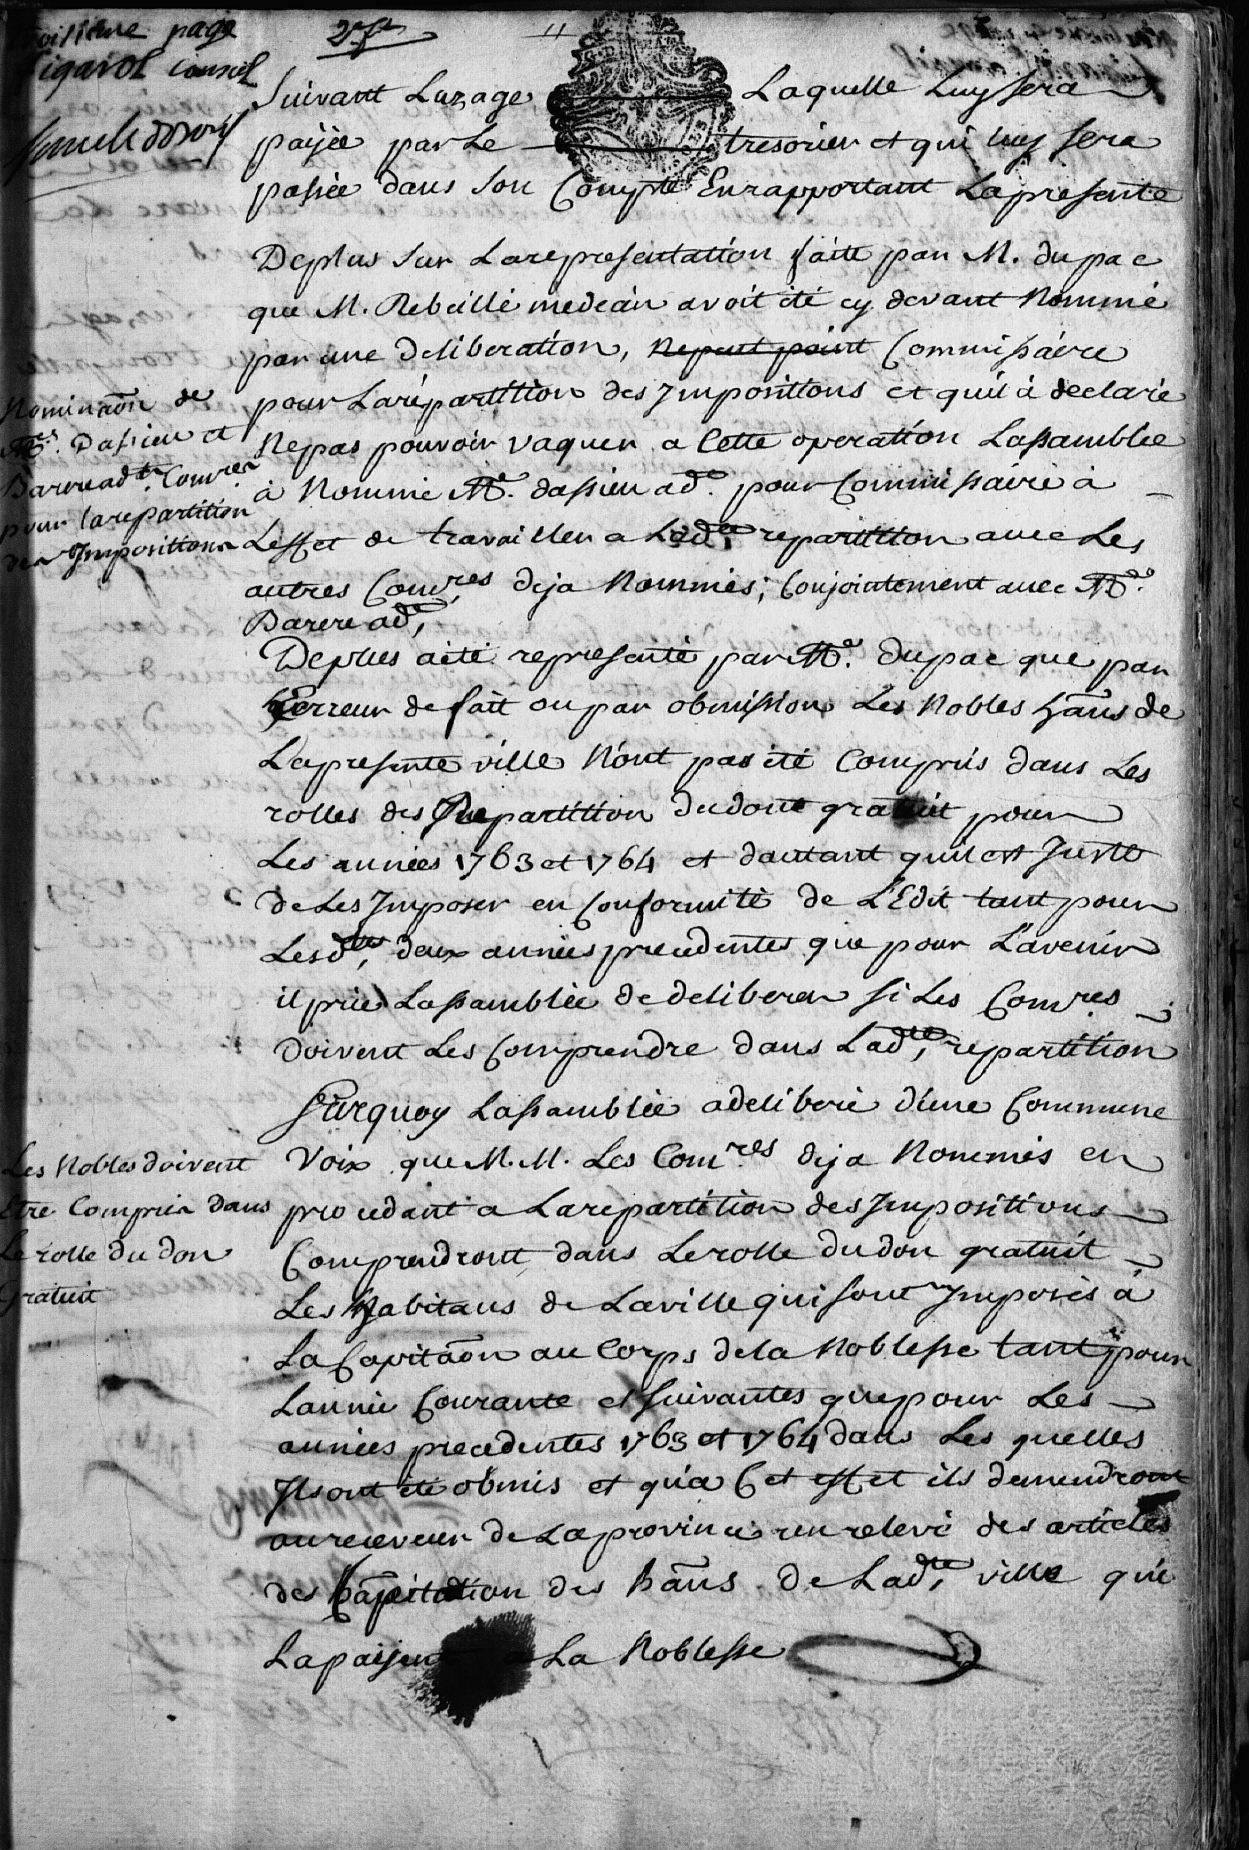 page
Conseil
Suivant Luzage Laquelle Luy sera
paÿée par Le tresorier et qui luy sera
passée dans son Compte En rapportant La presente
Deplus sur La representation faitte par M. dupac
que M. Rebeillé medecin avoit été cy devant Nommé
par une deliberation, Ne peut point Commissaire
pour La répartition des Impositions et quil à declaré
Ne pas pouvoir vaquer a Cette operation Lassamblée
à Nommé Me. dassieu ad.t pour Commissaire à
Leffet de travailler a Lad.te repartition avec Les
autres Com.res deja Nommés; Conjointement avec Me.
Barere ad.t,
Nominaôn de
Mes. Dassieu et
Barere ad.ts Comres
pour la repartition
des Impositions
Deplus a été representé par Me. dupac que par
Erreur de fait ou par obmission Les Nobles hans de
La presente ville N'ont pas été Compris dans Les
rolles des Repartition du don gratuit pour
Les années 1763 et 1764 et dautant quil est Juste
de Les Imposer en Conformité de L'Edit tant pour
Lesd.tes, deux années precedentes que pour L'avenir
il prie Lassamblée de deliberer si Les Com.res
Doivent Les Comprendre dans Lad.te, repartition
Surquoy Lassamblée a deliberé d'une Commune
Voix que M. M. Les Com.res deja Nommés en
procedant a La repartition des Impositions
Comprendront dans Le rolle du don gratuit
Les Habitans de La ville qui sont Imposés à
La Capitaôn au Corps de la Noblesse tant pour
Lannée Courante et suivantes que pour Les
années precedentes 1763 et 1764 dans Les quelles
Ils ont été obmis et qu'a Cet effet ils demendront
au receveur de La province un relevé des articles
des Capitation des hâns de Lad.te, ville qui
La paÿent a La Noblesse
Les Nobles doivent
Etre Compris dans
Le rolle du don
Gratuit